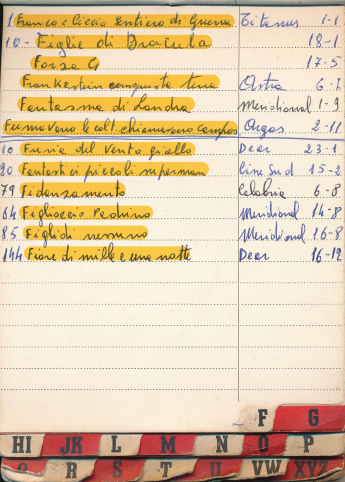 1 Franco e Ciccio Sentiero di Guerra Titanus 1-1
10- Figlie di Dracula 18-1
Forza G 17-5
Frankestein conquista terra Astra 6-7
Fantasma di Londra Meridional 1-9
Fumavano le colt chiamavano campos Argos 2-11
10 Furia del vento giallo Dear 23-1
20 Fantastici piccoli superman Cine Sud 15-2
79 Fidanzamento Calabria 6-8
84 Figlioccio Padrino Meridional 14-8
85 Figli di nessuno Meridional 16-8
144 Fiore di mille e una notte Dear 16-12
F G
HI JK L M N O P
Q R S T U VW XYZ